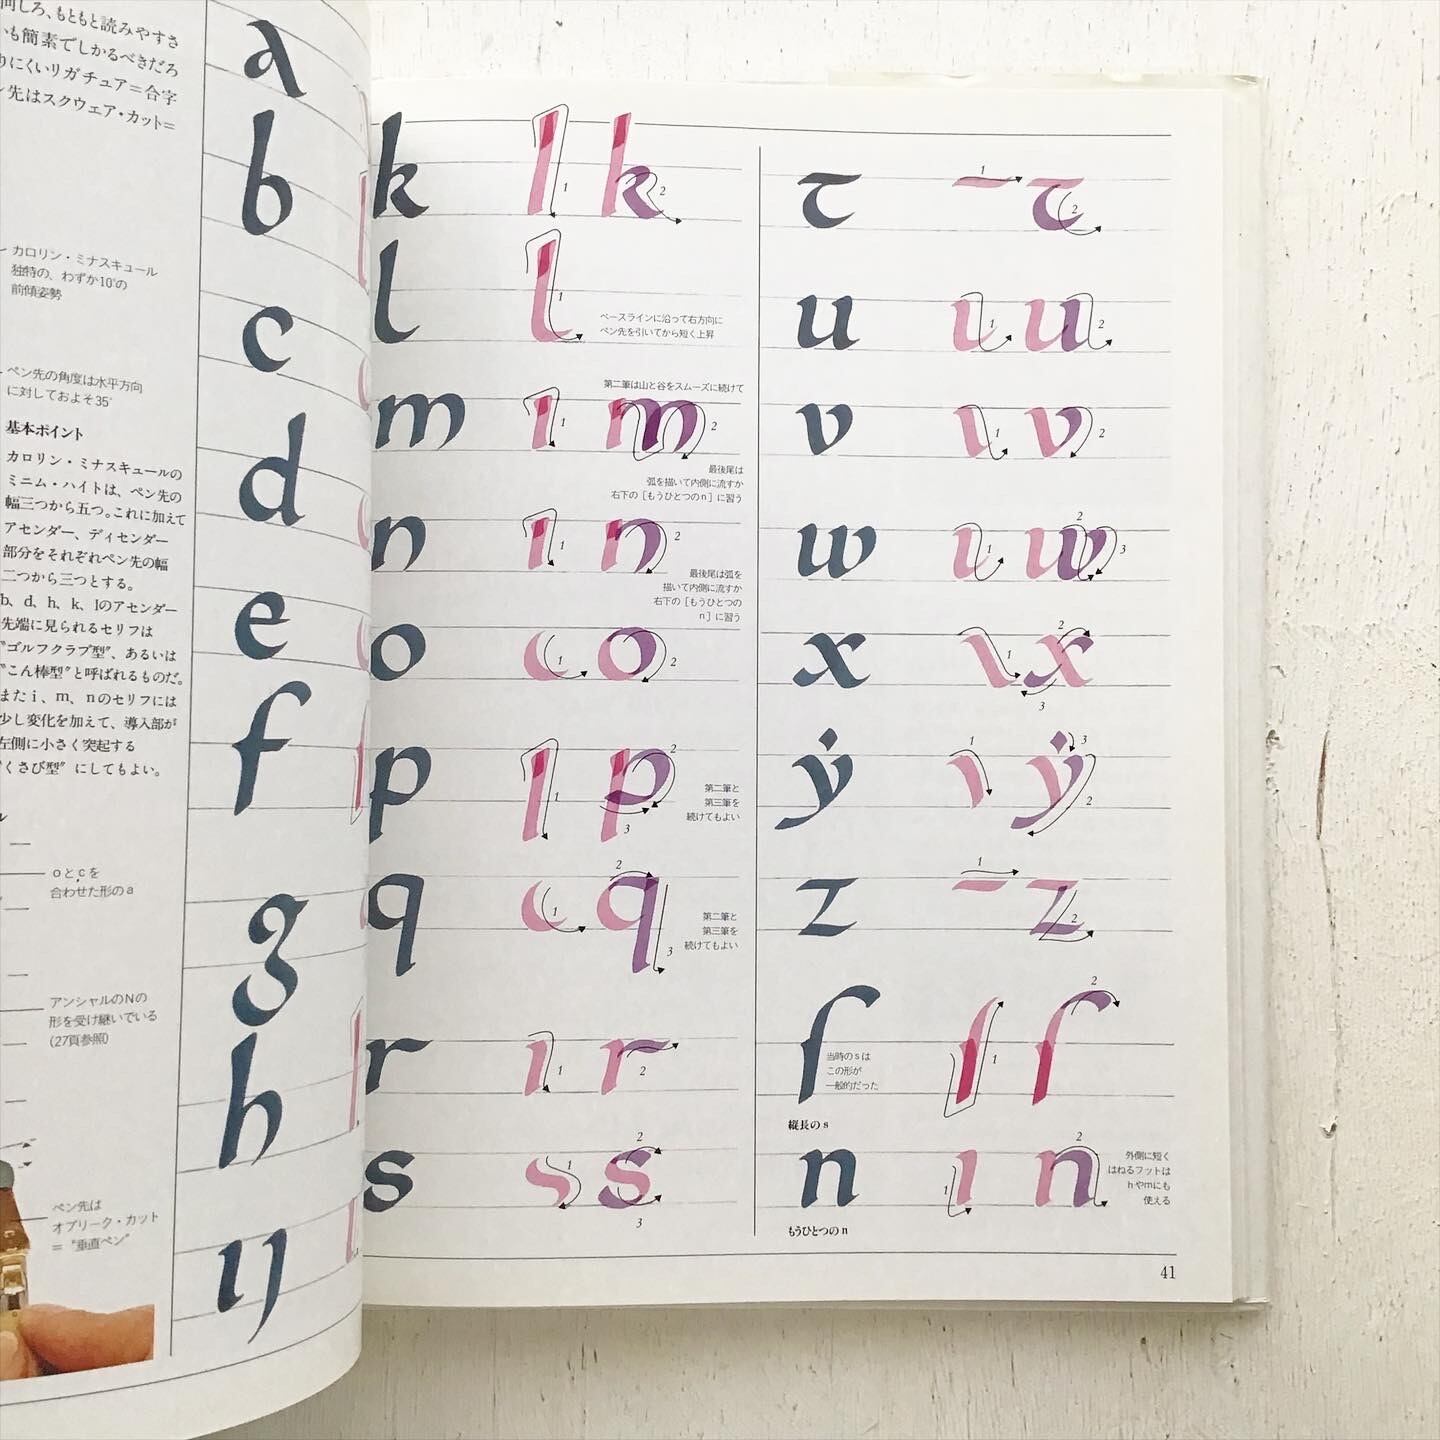 も、もともと読みやすさ
も簡素でしかるべきだろ
りにくいリガチュア=合字
先はスクウェア・カット=
カロリン・ミナスキュール
独特の、わずか10°の
前傾姿勢
ペン先の角度は水平方向
に対しておよそ35°
基本ポイント
カロリン・ミナスキュールの
ミニム・ハイトは、ペン先の
幅三つから五つ。これに加えて
アセンダー、ディセンダー
部分をそれぞれペン先の幅
二つから三つとする。
b、d、h、k、lのアセンダー
先端に見られるセリフは
"ゴルフクラブ型"、あるいは
"こん棒型"と呼ばれるものだ。
またi、m、nのセリフには
少し変化を加えて、導入部が
左側に小さく突起する
"くさび型"にしてもよい。
oとcを
合わせた形のa
アンシャルのNの
形を受け継いでいる
(27頁参照)
ペン先は
オブリーク・カット
="垂直ペン"
a
b
c
d
e
f
g
h
ıȷ
k l 1 k 2
l l 1
ベースラインに沿って右方向に
ペン先を引いてから短く上昇
第二筆は山と谷をスムーズに続けて
m ı 1 m 2
最後尾は
弧を描いて内側に流すか
右下の[もうひとつのn]に習う
n ı 1 n 2
最後尾は弧を
描いて内側に流すか
右下の[もうひとつの
n]に習う
o 1 o 2
p 1 p 2 3
第二筆と
第三筆を
続けてもよい
q 1 q 2 3
第二筆と
第三筆を
続けてもよい
r ı 1 r 2
s 1 s 2 3
t 1 t 2
u 1 u 2
v 1 v 2
w 1 w 2 3
x 1 x 2 3
ẏ 1 ẏ 2 3
z 1 z 2
ſ 1 ſ 2
当時のsは
この形が
一般的だった
縦長のs
n 1 n 2
外側に短く
はねるフットは
hやmにも
使える
もうひとつのn
41